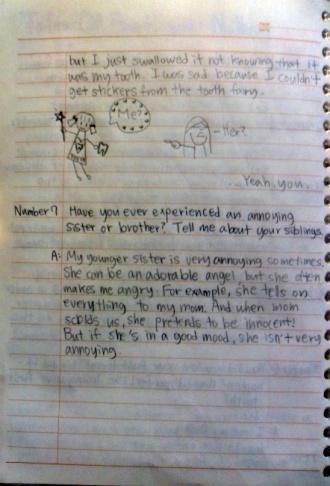 but I just swallowed it not knowing that it
was my tooth. I was sad because I couldn't
get stickers from the tooth fairy.
Me?
-Her?
...Yeah, you.
Number 7 Have you ever experienced an annoying
sister or brother? Tell me about your siblings.
A: My younger sister is very annoying sometimes.
She can be an adorable angel but she often
makes me angry. For example, she tells on
everything to my mom. And when mom
scolds us, she pretends to be innocent!
But if she's in a good mood, she isn't very
annoying.